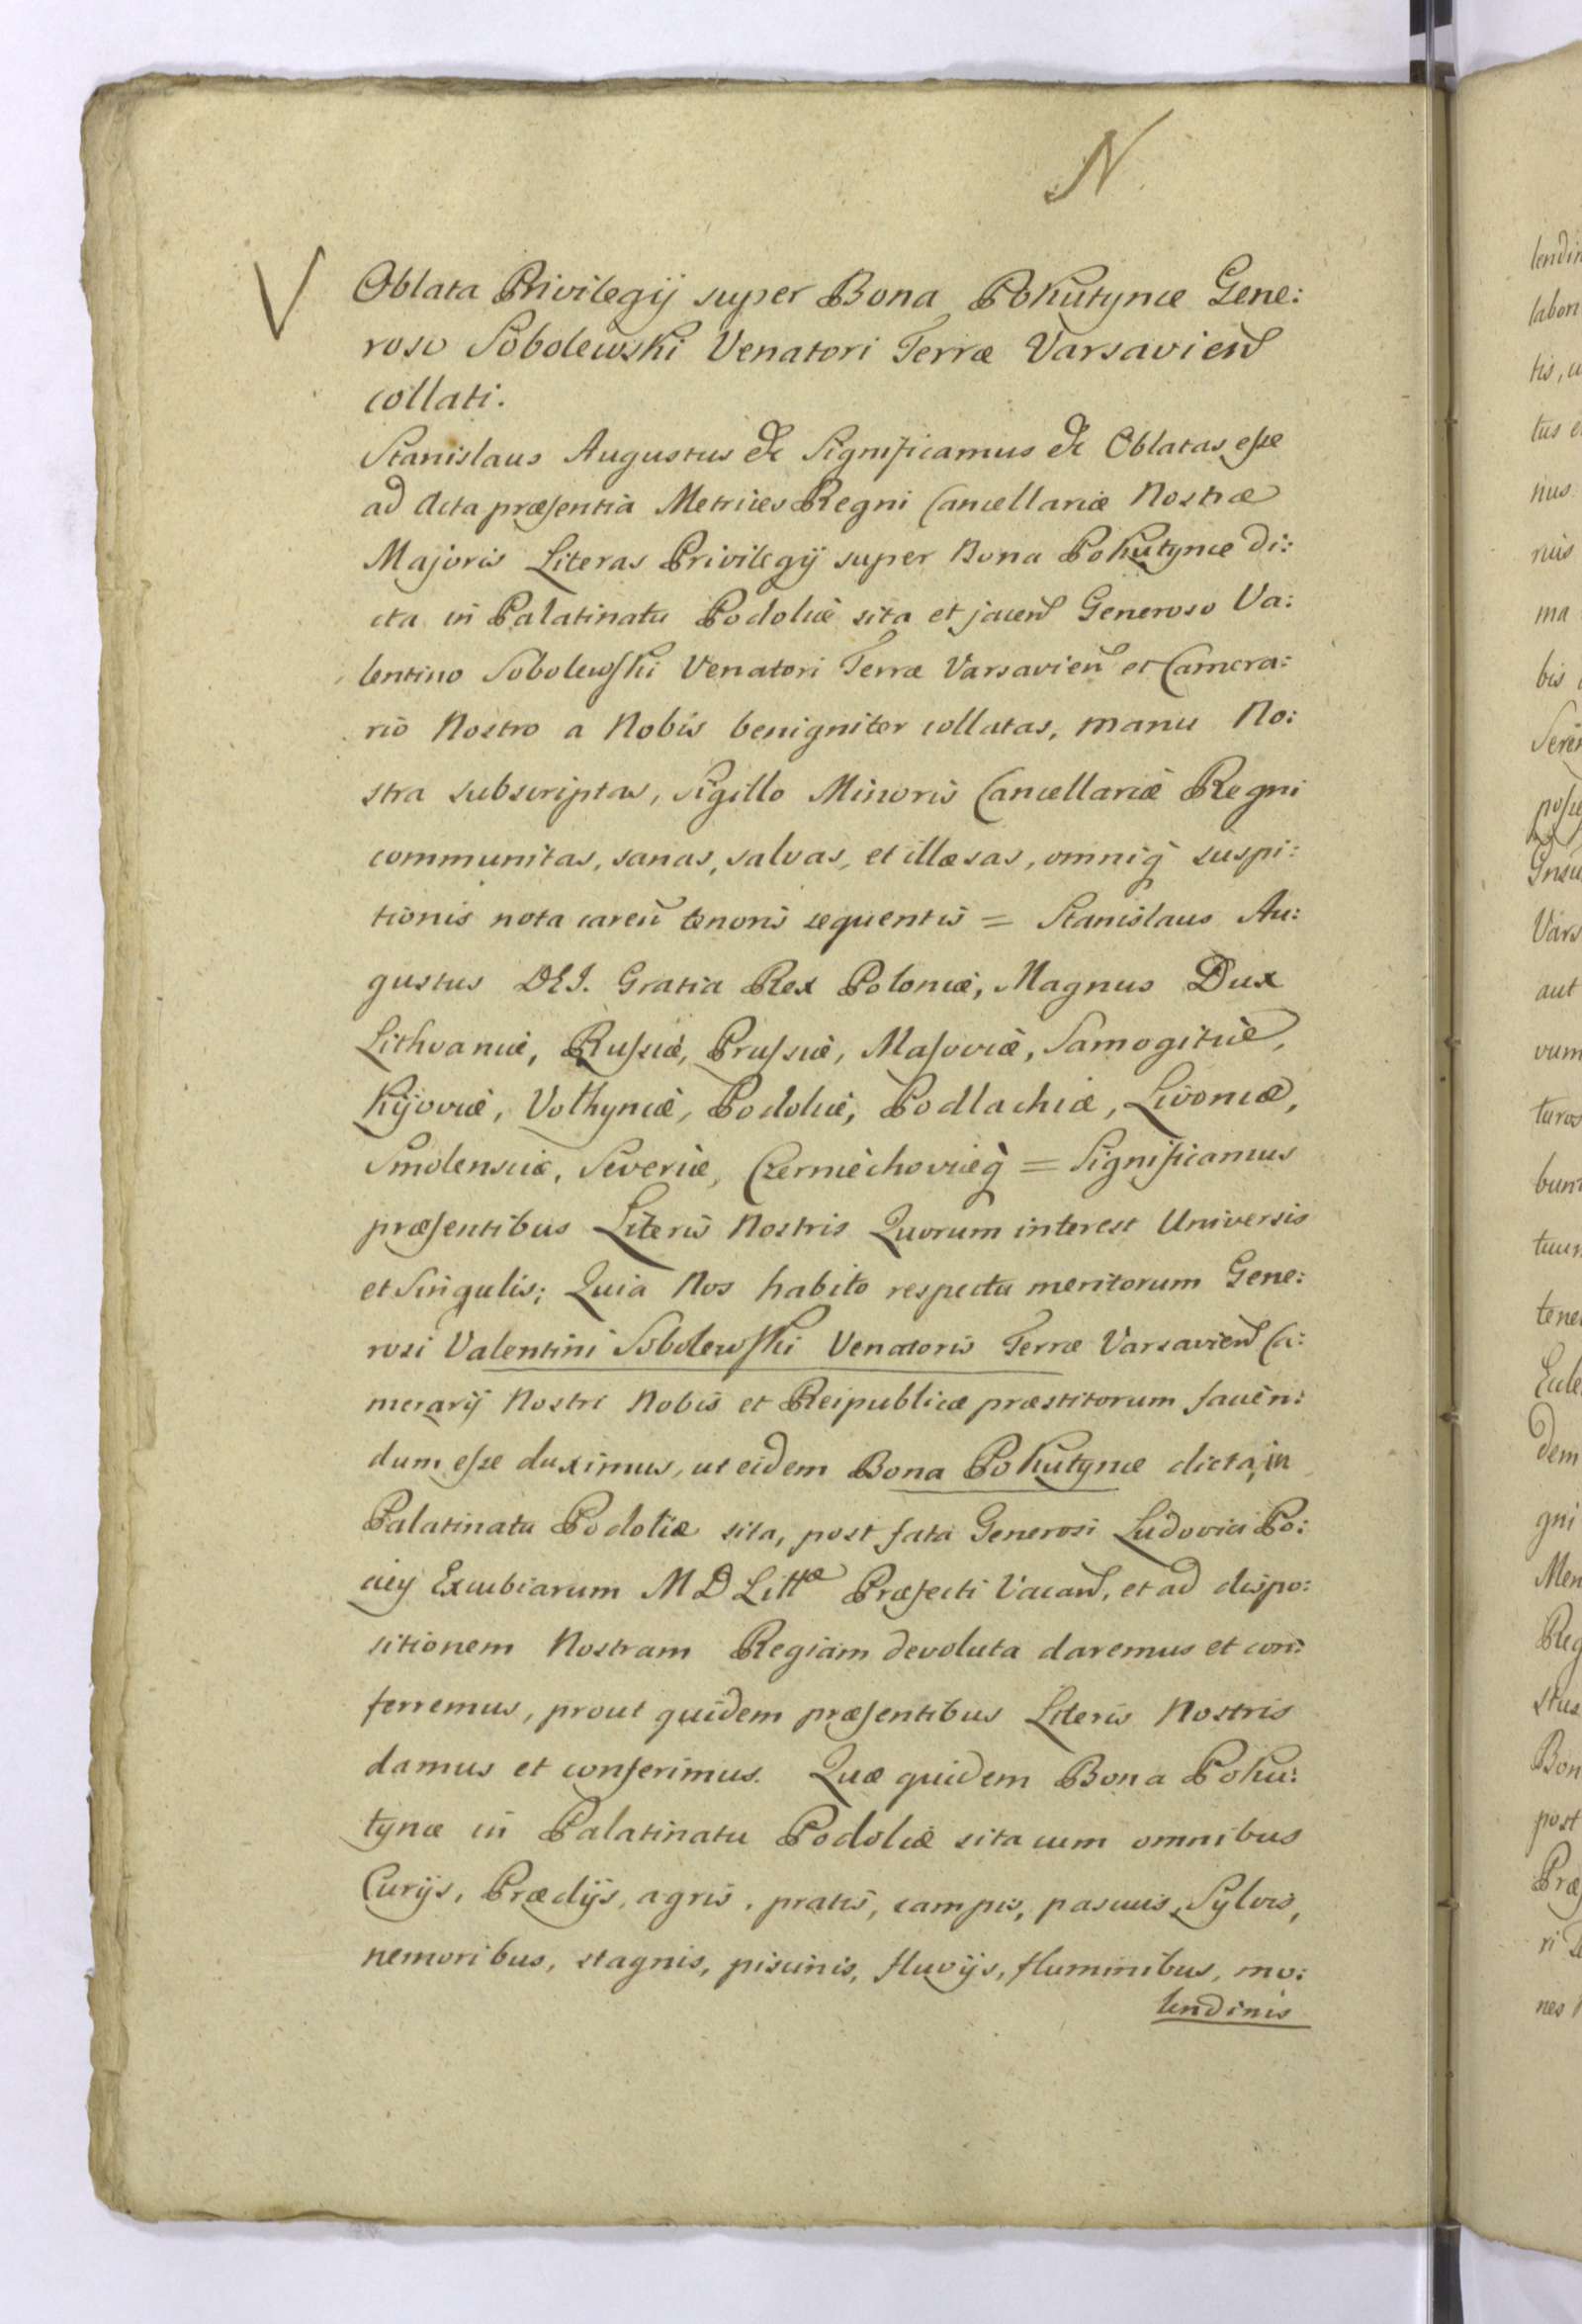 N
V
Oblata Privilegij super Bona Pokutynce Gene:
roso Sobolewski Venatori Terræ Varsavien
collati.
Stanislaus Augustus &c Significamus &c Oblatas eſse
ad Acta præſentia Metrices Regni Cancellariæ Nostræ
Majoris Literas Privilegij super Bona Pokutynce di:
cta in Palatinatu Podoliæ sita et jacen Generoso Va:
lentino Sobolewſki Venatori Terræ Varsavien et Camera:
rio Nostro a Nobis benigniter collatas, manu No:
stra subscriptas, Sigillo Minoris Cancellariæ Regni
communitas, sanas, salvas, et illæsas, omniq suspi:
tionis nota caren tenoris sequentis = Stanislaus Au:
gustus DEI. Gratia Rex Poloniæ, Magnus Dux
Lithvaniæ, Ruſsiæ, Pruſsiæ, Maſoviæ, Samogitiæ,
Kijoviæ, Volhyniæ, Podoliæ, Podlachiæ, Livoniæ,
Smolensciæ, Severiæ, Czerniechoviæq = Significamus
præſentibus Literis Nostris Quorum interest Universis
et Singulis; Quia Nos habito respectu meritorum Gene:
rosi Valentini Sobolewſki Venatoris Terræ Varsavien Ca:
merarij Nostri Nobis et Reipublicæ præstitorum facien:
dum eſse duximus, ut eidem Bona Pokutynce dicta, in
Palatinatu Podoliæ sita, post fata Generosi Ludovici Po:
ciey Excubiarum M D Littæ Præfecti Vacan, et ad dispo:
sitionem Nostram Regiam devoluta daremus et con:
ferremus, prout quidem præſentibus Literis Nostris
damus et conferimus. Quæ quidem Bona Poku:
tynæ in Palatinatu Podoliæ sita cum omnibus
Curijs, Prædijs, agris, pratis, campis, pascuis, Sylvis,
nemoribus, stagnis, piscinis, fluvijs, fluminibus, mo:
lendinis